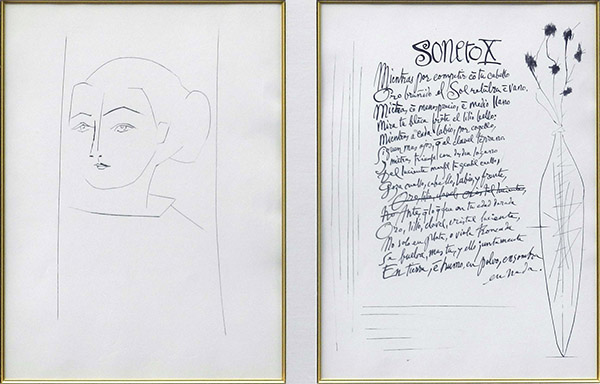 Soneto X
Mientras por competir cō tu cabello
Oro bruñido el Sol relumbra ē vano,
Mientras cō menosprecio, ē medio llano
Mira tu blāca frēte el lilio bello;
Mientras a cada labio, por cogello,
Siguen mas ojos, q̄ al clavel temprano
Y mientras triunfa con desdē lozano
del luciente marfil tu gentil cuello,
Goza cuello, cabello, labio y frente,
Oro, lilio, clavel,
Antes, q̄ lo q̄ fue en tu edad dorada
Oro, lilio, clavel, cristal luciente,
No solo en plata, o viola troncada
Se buelva, mas tu, y ello juntamente
En tierra, ē humo, en polvo, en sombra
en nada.